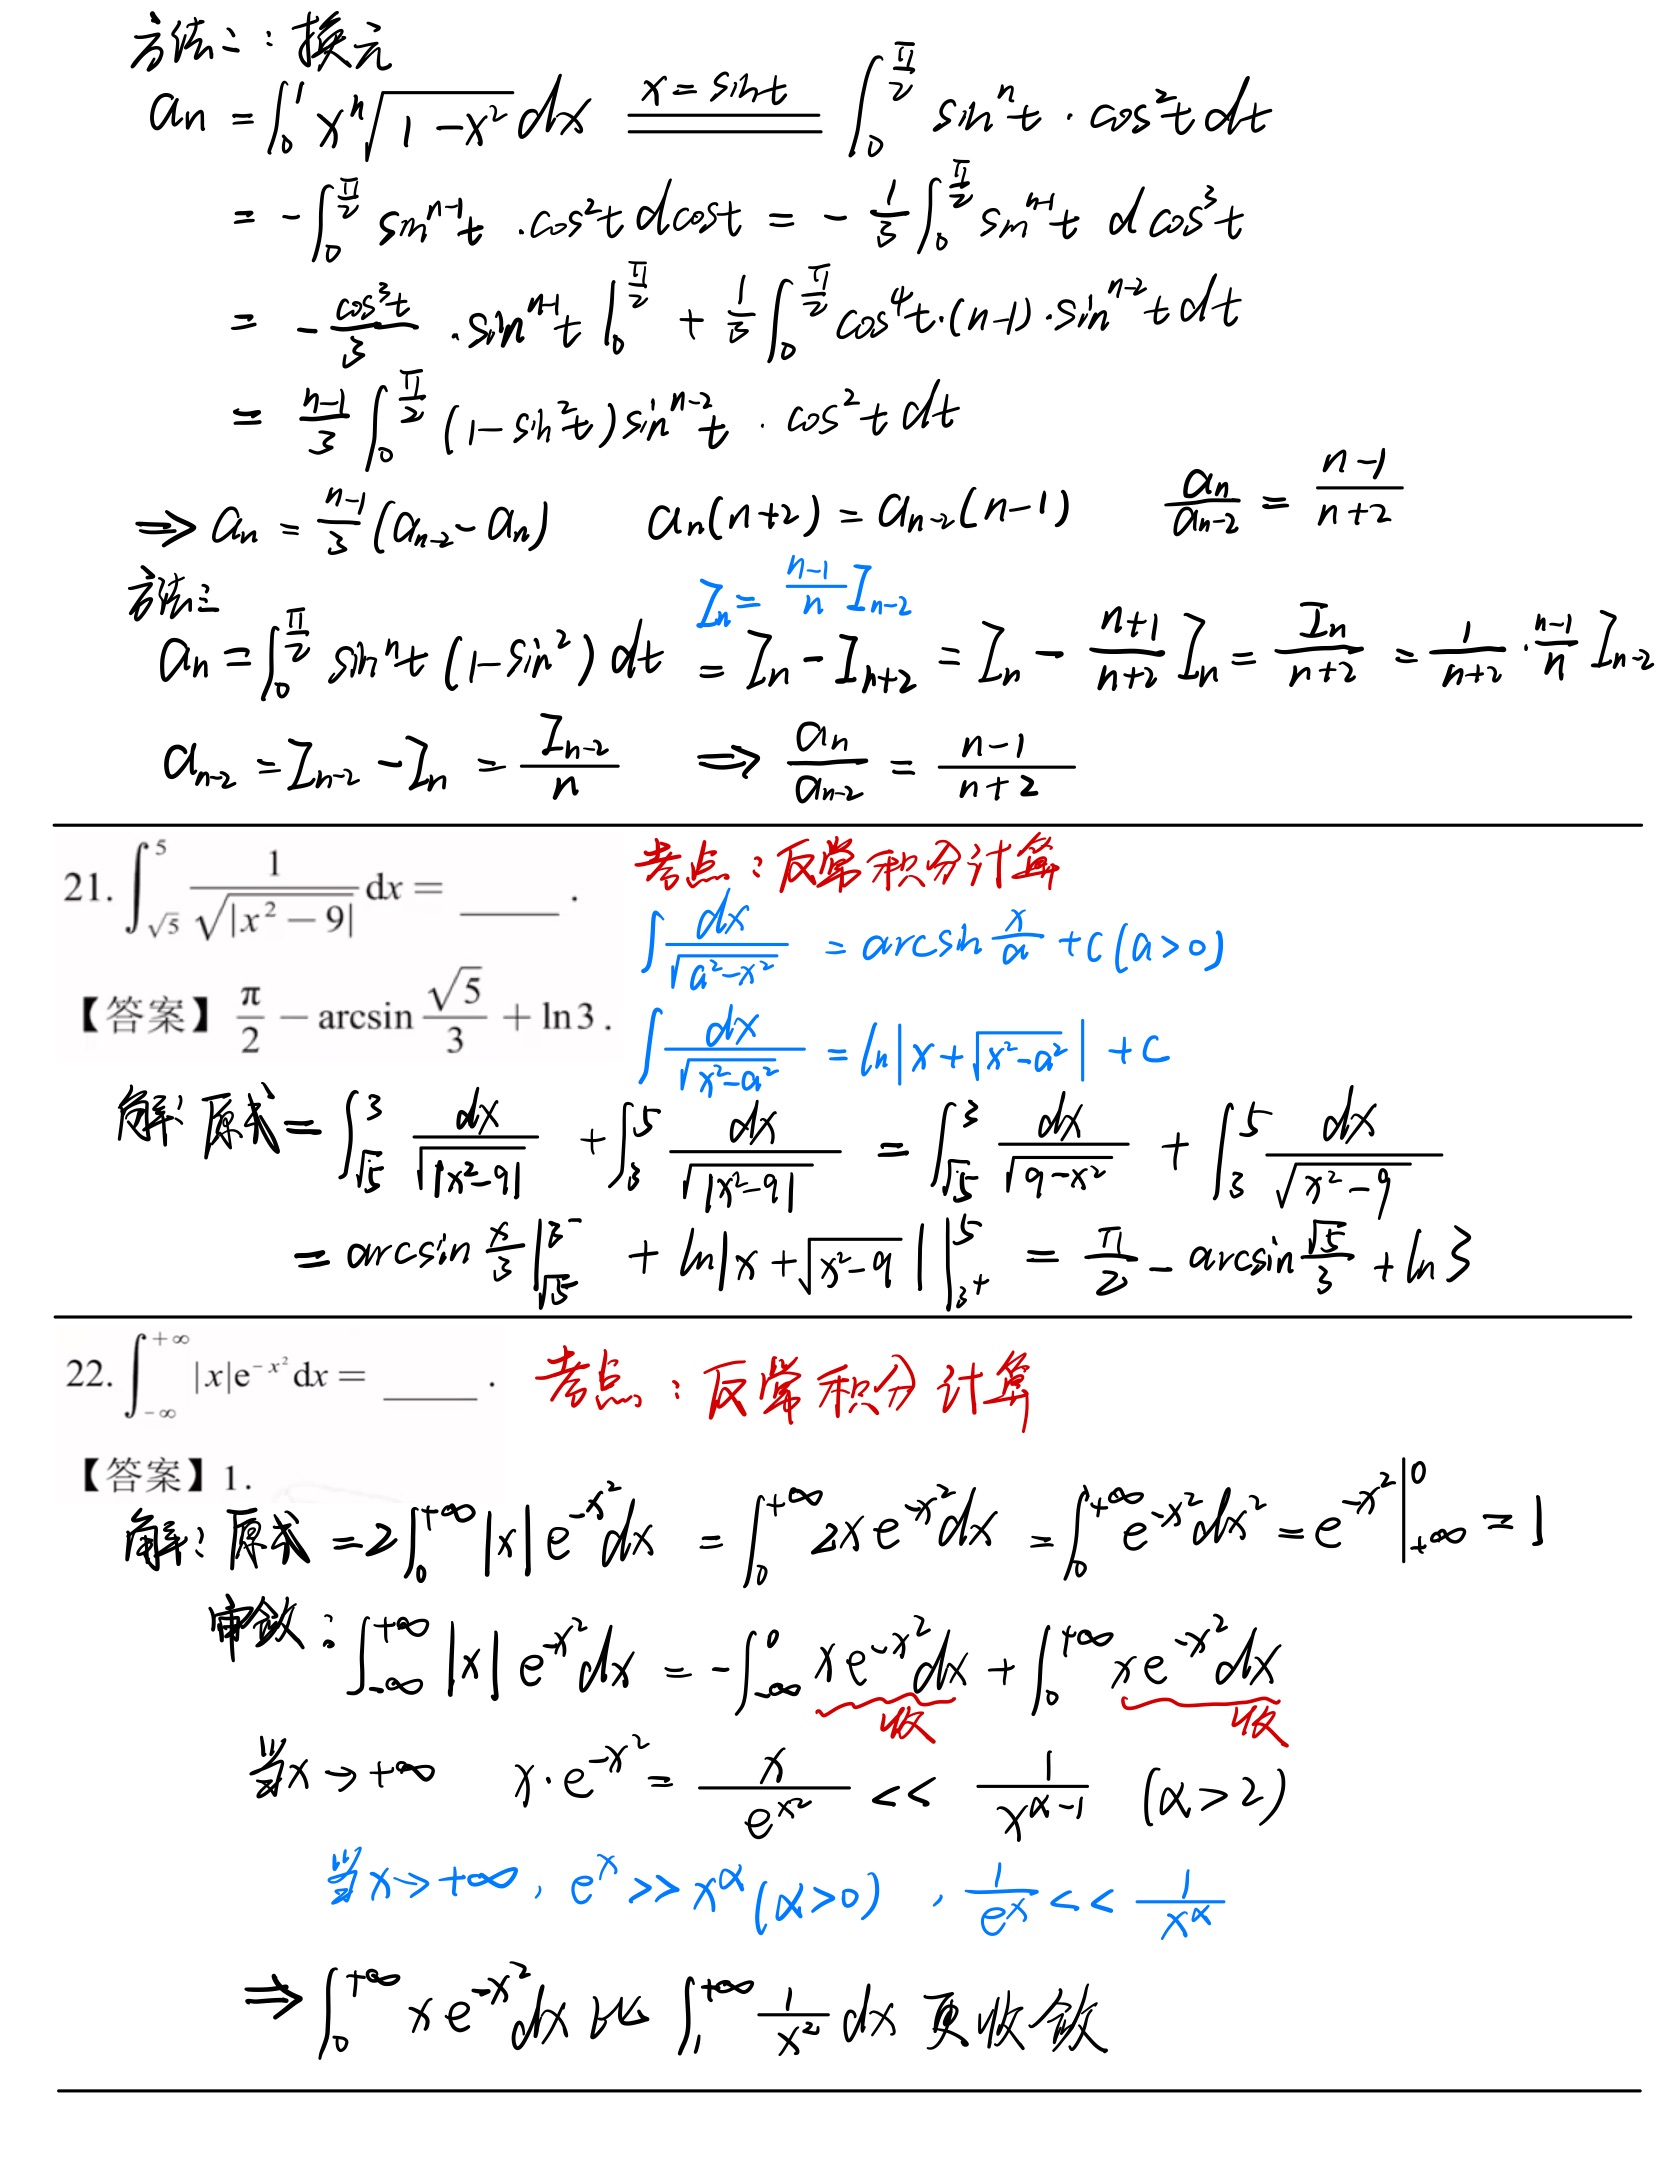 方法二：换元
aₙ = ∫₀¹ xⁿ√(1-x²) dx  x=sint ∫₀^(π/2) sinⁿt · cos²t dt
= -∫₀^(π/2) sinⁿ⁻¹t · cos²t dcost = -1/3 ∫₀^(π/2) sinⁿ⁻¹t dcos³t
= -cos³t/3 · sinⁿ⁻¹t |₀^(π/2) + 1/3 ∫₀^(π/2) cos⁴t·(n-1)·sinⁿ⁻²t dt
= (n-1)/3 ∫₀^(π/2) (1-sin²t) sinⁿ⁻²t · cos²t dt
⇒ aₙ = (n-1)/3 (aₙ₋₂ - aₙ)  aₙ(n+2) = aₙ₋₂(n-1)  aₙ/aₙ₋₂ = (n-1)/(n+2)
方法三
Iₙ = (n-1)/n Iₙ₋₂
aₙ = ∫₀^(π/2) sinⁿt (1-sin²) dt = Iₙ - Iₙ₊₂ = Iₙ - (n+1)/(n+2) Iₙ = Iₙ/(n+2) = 1/(n+2) · (n-1)/n Iₙ₋₂
aₙ₋₂ = Iₙ₋₂ - Iₙ = Iₙ₋₂/n ⇒ aₙ/aₙ₋₂ = (n-1)/(n+2)
21. ∫_√5^5 1/√|x²-9| dx = ____ .
考点：反常积分计算
∫ dx/√(a²-x²) = arcsin x/a + C (a>0)
【答案】 π/2 - arcsin √5/3 + ln3.
∫ dx/√(x²-a²) = ln|x+√(x²-a²)| + C
解：原式 = ∫_√5^3 dx/√|x²-9| + ∫₃^5 dx/√|x²-9| = ∫_√5^3 dx/√(9-x²) + ∫₃^5 dx/√(x²-9)
= arcsin x/3 |_√5^3⁻ + ln|x+√(x²-9)| |_3⁺^5 = π/2 - arcsin √5/3 + ln3
22. ∫_-∞^+∞ |x|e^(-x²) dx = ____ .  考点：反常积分计算
【答案】1.
解：原式 = 2∫₀^+∞ |x| e^(-x²) dx = ∫₀^+∞ 2x e^(-x²) dx = ∫₀^+∞ e^(-x²) dx² = e^(-x²) |_+∞^0 = 1
审敛：∫_-∞^+∞ |x| e^(-x²) dx = -∫_-∞^0 x e^(-x²) dx + ∫₀^+∞ x e^(-x²) dx
收 收
当x→+∞  x·e^(-x²) = x/e^(x²) << 1/x^(α-1) (α>2)
当x→+∞, e^x >> x^α (α>0), 1/e^x << 1/x^α
⇒ ∫₀^+∞ x e^(-x²) dx 比 ∫₁^+∞ 1/x² dx 更收敛